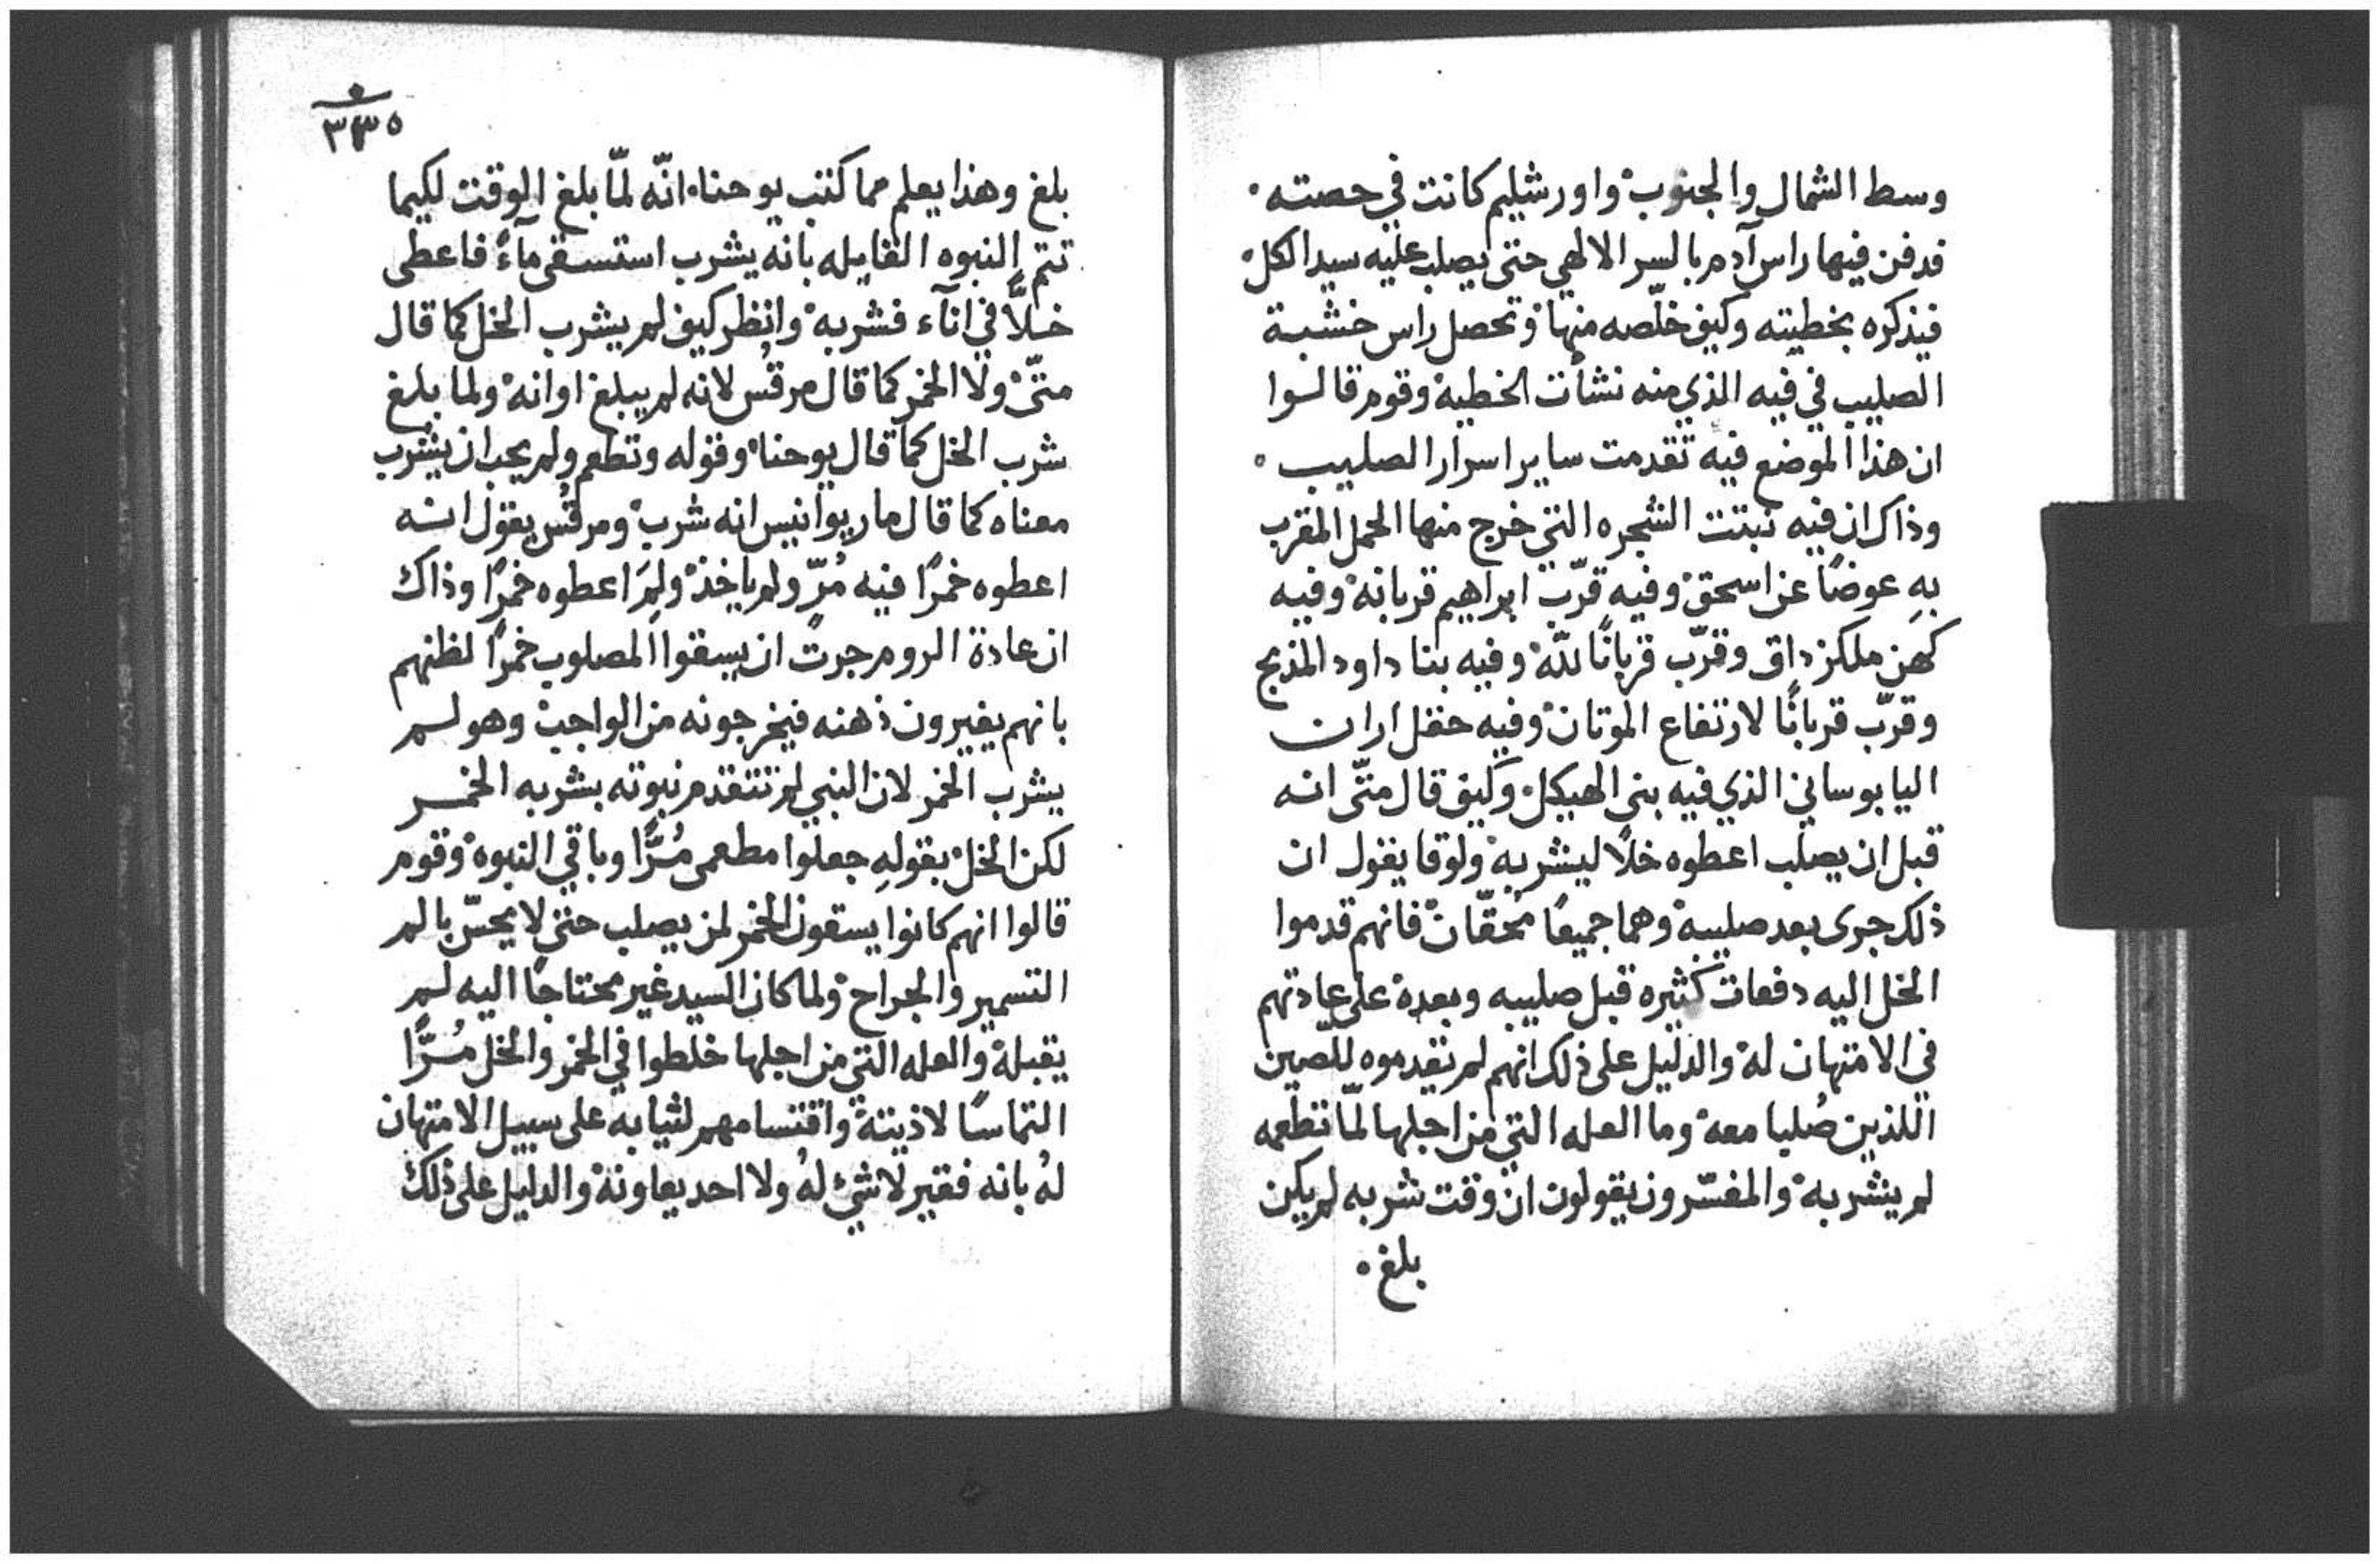 وسط الشمال والجنوب واورشليم كانت في حصته
فدفن فيها راس آدم بالسر الالهي حتى يصلب عليه سيد الكل
فيذكره بخطيته وكيف خلّصه منها وتحصل راس خشبة
الصليب في فيه الذي منه نشأت الخطية وقوم قالوا
ان هذا الموضع فيه تقدمت ساير اسرار الصليب
وذاك ان فيه نبتت الشجره التي خرج منها الحمل المقرب
بهِ عوضًا عن اسحق وفيه قرّب ابراهيم قربانه وفيه
كهن ملكزداق وقرّب قربانًا للّه وفيه بنا داود المذبح
وقرّب قربانًا لارتفاع الموتان وفيه حقل اران
اليابوساني الذي فيه بنى الهيكل وكيف قال متّى انه
قبل ان يصلب اعطوه خلًا ليشربه ولوقا يقول ان
ذلك جرى بعد صليبه وهما جميعًا مُحقّان فانهم قدموا
الخل اليه دفعات كثيره قبل صليبه وبعده على عادتهم
في الامتهان له والدليل على ذلك انهم لم يقدموه للصين
اللذين صُلبا معه وما العله التي من اجلها لمّا تطعمه
لم يشربه والمفسّرون يقولون ان وقت شربه لم يكن
بلغ
٣٣٥
بلغ وهذا يعلم مما كتب يوحنا انّه لمّا بلغ الوقت لكيما
تتم النبوه القايله بانه يشرب استسقى مآءً فاعطى
خلًّا في انآء فشربه وانظر كيف لم يشرب الخل كما قال
متّى ولا الخمر كما قال مرقُس لانه لم يبلغ اوانه ولما بلغ
شرب الخل كما قال يوحنا وقوله وتطعم ولم يجب ان يشرب
معناه كما قال ماريوانيس انه شرب ومرقُس يقول انه
اعطوه خمرًا فيه مُرّ ولم ياخذ ولِمَ اعطوه خمرًا وذاك
ان عادة الروم جرت ان يسقوا المصلوب خمرًا لظنهم
بانهم يغيرون ذهنه فيخرجونه من الواجب وهو لم
يشرب الخمر لان النبي لم تتقدم نبوته بشربه الخمر
لكن الخل بقولهِ جعلوا مطعمى مُرًّا وباقي النبوه وقوم
قالوا انهم كانوا يسقون الخمر لمن يصلب حتى لا يحسّ بالم
التسمير والجراح ولما كان السيد غير محتاجًا اليه لم
يقبله والعله التي من اجلها خلطوا في الخمر والخل مُرًّا
التماسًا لاذيته واقتسامهم لثيابه على سبيل الامتهان
لهُ بانه فقير لا شيٌ لهُ ولا احد يعاونه والدليل على ذلك